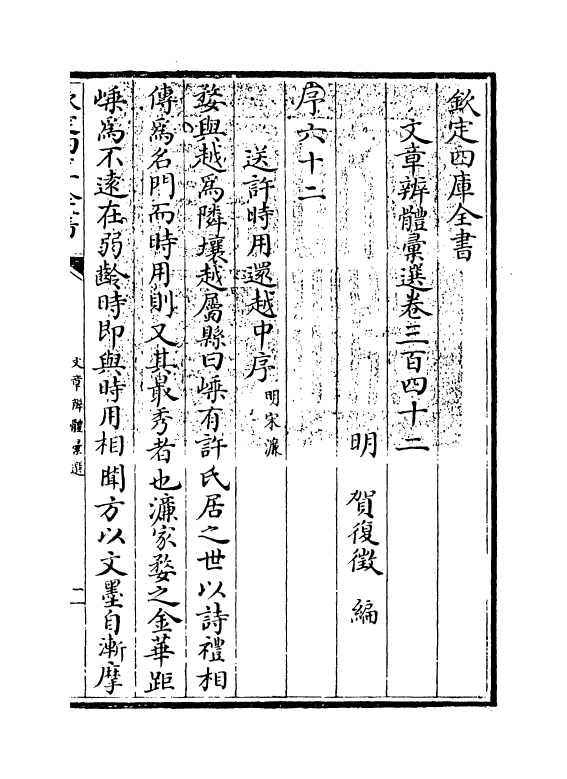 欽定四庫全書
文章辨體彙選卷三百四十二
明 賀復徵 編
序六十二
送許時用還越中序 明宋濂
婺與越為隣壤越屬縣曰嵊有許氏居之世以詩禮相
傳為名門而時用則又其最秀者也濂家婺之金華距
嵊為不遠在弱齡時即與時用相聞方以文墨自漸摩
文章辨體彙選